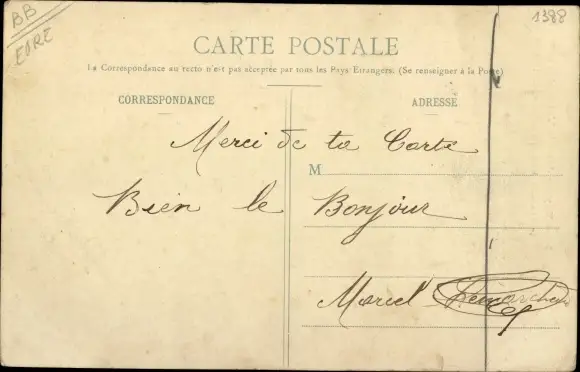 BB
EURE
1388
CARTE POSTALE
La Correspondance au recto n'est pas acceptée par tous les Pays Etrangers. (Se renseigner à la Poste)
CORRESPONDANCE
ADRESSE
Merci de ta Carte
M
Bien le Bonjour
Marcel